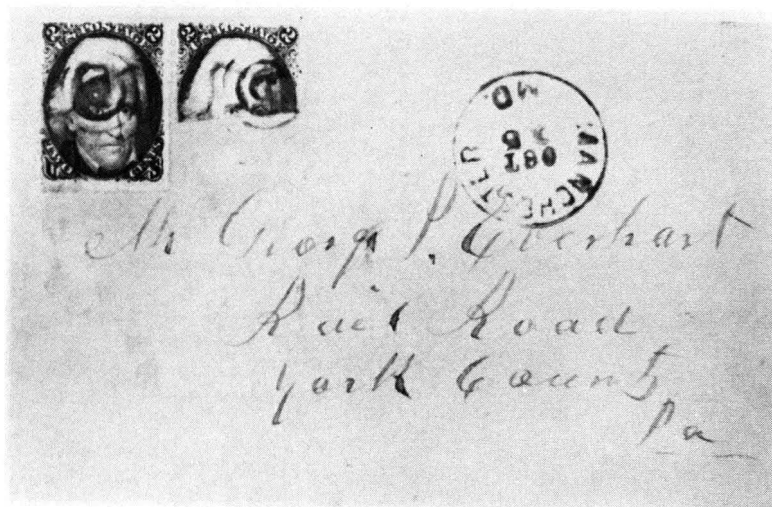 MANCHESTER MD.
OCT
Mr George P. Everhart
Rail Road
York County
Pa